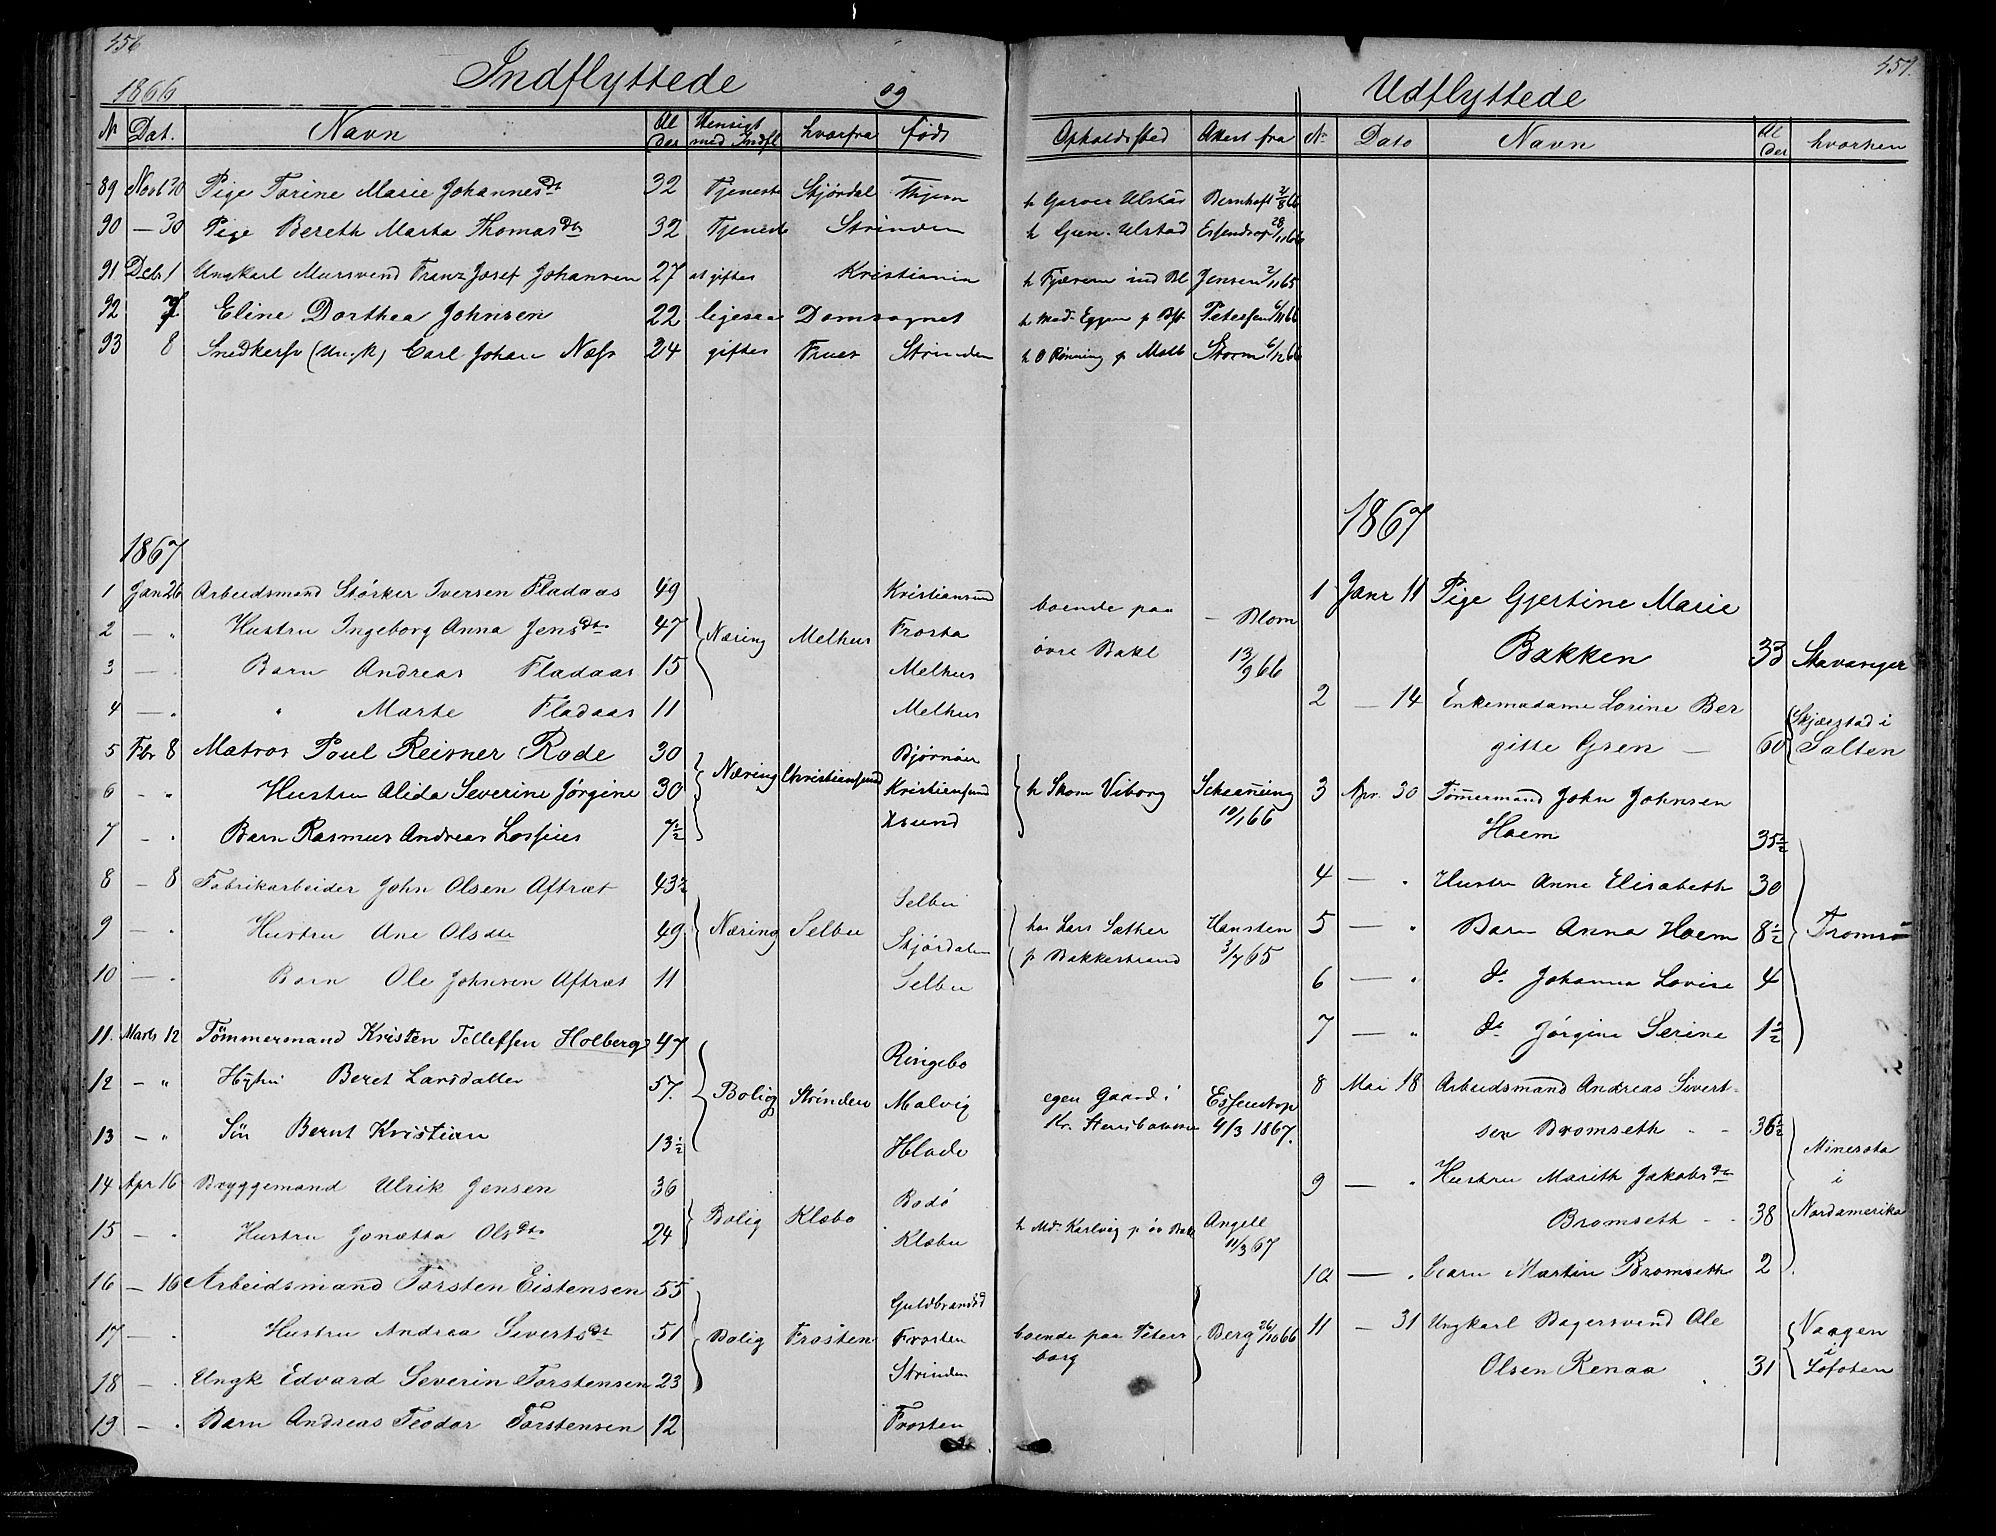 456
457.
Indflyttede og Udflyttede
1866
N Dat. Navn Al der Hensigt med Indfl hvorfra født Opholdssted Attest fra
89 Novb 30 Pige Torine Marie Johannes Dt 32 Tjeneste Stjørdal h Garver Ulstad Bernhoft 2/8 66
90 — 30 Pige Bereth Marta Thomas Dtr 32 Tjeneste Strinden h Garv. Ulstad Essendrop 28/11 66
91 Decb. 1 Ungkarl Mursvend Franz Josef Johansen 27 at giftes Kristiania Jensen 2/11 65
92 7 Eline Dorthea Johnsen 22 ligesaa Domsognet h Mad. Eggen p Petersen 6/11 66
93 8 Snedkersv (Ungk) Carl Johan Næss 24 giftes Strinden h O Rønning p Storm 6/12 66
1867
1 Jan 26 Arbeidsmand Størker Iversen Fladaas 49 Kristiansund
2 — „ Hustru Ingeborg Anna Jens dtr 47 Næring Melhus Frosta boende paa øvre Bakl — Blom 13/9 66
3 — Barn Andreas Fladaas 15 Melhus
4 — „ „ Marte Fladaas 11 Melhus
5 Fbr 8 Matros Poul Reisner Rode 30 Næring Christiansund Bjørnør
6 — „ Hustru Alida Severine Jørgine 30 Kristiansund h Skom Viborg 10/1 66
7 — „ Barn Rasmus Andreas 7½ Xsund
8 — 8 Fabrikarbeider John Olsen Aftret 43½ Selbu
9 — „ Hustru Ane Ols dtr 49 Næring Selbu Stjørdalen hos Lars Sæther p Bakkestrand Hansten 3/7 65
10 — „ Barn Ole Johnsen Aftret 11 Selbu
11. Marts 12 Tømmermand Kristen Tellefsen Holberg 47 Ringebo
12 — „ Beret Larsdatter 57. Bolig Strinden Malvig egen Gaard i Essendrop 4/3 1867.
13 — „ Søn Bernt Kristian 13½ Hlade
14 Apr 16 Bryggemand Ulrik Jensen 36 Bodø
15 — „ Hustru Jonetta Ols Dtr 24 Bolig Klæbo Klæbu h Md. Karlvig p øv Bakl Angell 11/3 67
16 — 16 Arbeidsmand Torsten Eistensen 55 Guldbrandsd
17 — „ Hustru Andrea Siverts Dt 51 Bolig Frosten Frosten boende paa Peters borg Berg 26/10 66
18 — „ Ungk Edvard Severin Torstensen 23 Strinden
19 — „ Barn Andreas Teodor Torstensen 12 Frosten
Nr Dato Navn Al der hvorhen
1867
1 Janr 11 Pige Gjertine Marie
Bakken 33 Stavanger
2 — 14 Enkemadame Lorine Ber
gitte Gren — 60 Skjærstad i Salten
3 Apr. 30 Tømmermand John Johnsen
Hoem 35½
4 — „ Hustru Anne Elisabeth 30
5 — „ Barn Anna Hoem 8½ Tromsø
6 — „ do Johanna Lovise 4
7 — „ do Jørgine Serine 1½
8 Mai 18 Arbeidsmand Andreas Sivert-
sen Bromseth - - 36½ Minesota
9 — „ Hustru Marith Jakobs Dtr i
Bromseth - - 38 Nordamerika
10 — „ Barn Martin Bromseth 2
11 — 31 Ungkarl Bagersvend Ole Vaagen
Olsen Renaa 31 i Lofoten